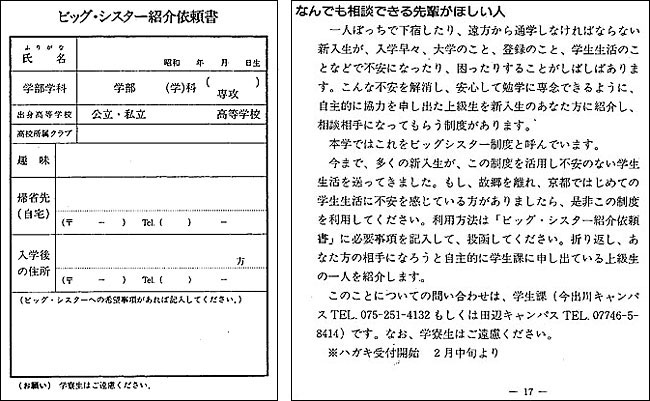 ビッグ・シスター紹介依頼書
ふりがな
氏名
昭和 年 月 日生
学部学科
学部 (学)科( 専攻 )
出身高等学校
公立・私立 高等学校
高校所属クラブ
趣味
帰省先
(自宅)
(〒 － ) Tel.( ) －
入学後
の住所
方
(〒 － ) Tel.( ) －
(ビッグ・シスターへの希望事項があれば記入してください。)
(お願い) 学寮生はご遠慮ください。
なんでも相談できる先輩がほしい人
一人ぼっちで下宿したり、遠方から通学しなければならない
新入生が、入学早々、大学のこと、登録のこと、学生生活のこ
となどで不安になったり、困ったりすることがしばしばありま
す。こんな不安を解消し、安心して勉学に専念できるように、
自主的に協力を申し出た上級生を新入生のあなた方に紹介し、
相談相手になってもらう制度があります。
本学ではこれをビッグシスター制度と呼んでいます。
今まで、多くの新入生が、この制度を活用し不安のない学生
生活を送ってきました。もし、故郷を離れ、京都ではじめての
学生生活に不安を感じている方がありましたら、是非この制度
を利用してください。利用方法は「ビッグ・シスター紹介依頼
書」に必要事項を記入して、投函してください。折り返し、あ
なた方の相手になろうと自主的に学生課に申し出ている上級生
の一人を紹介します。
このことについての問い合わせは、学生課（今出川キャンパ
スTEL.075-251-4132もしくは田辺キャンパスTEL.07746-5-
8414）です。なお、学寮生はご遠慮ください。
※ハガキ受付開始 2月中旬より
— 17 —